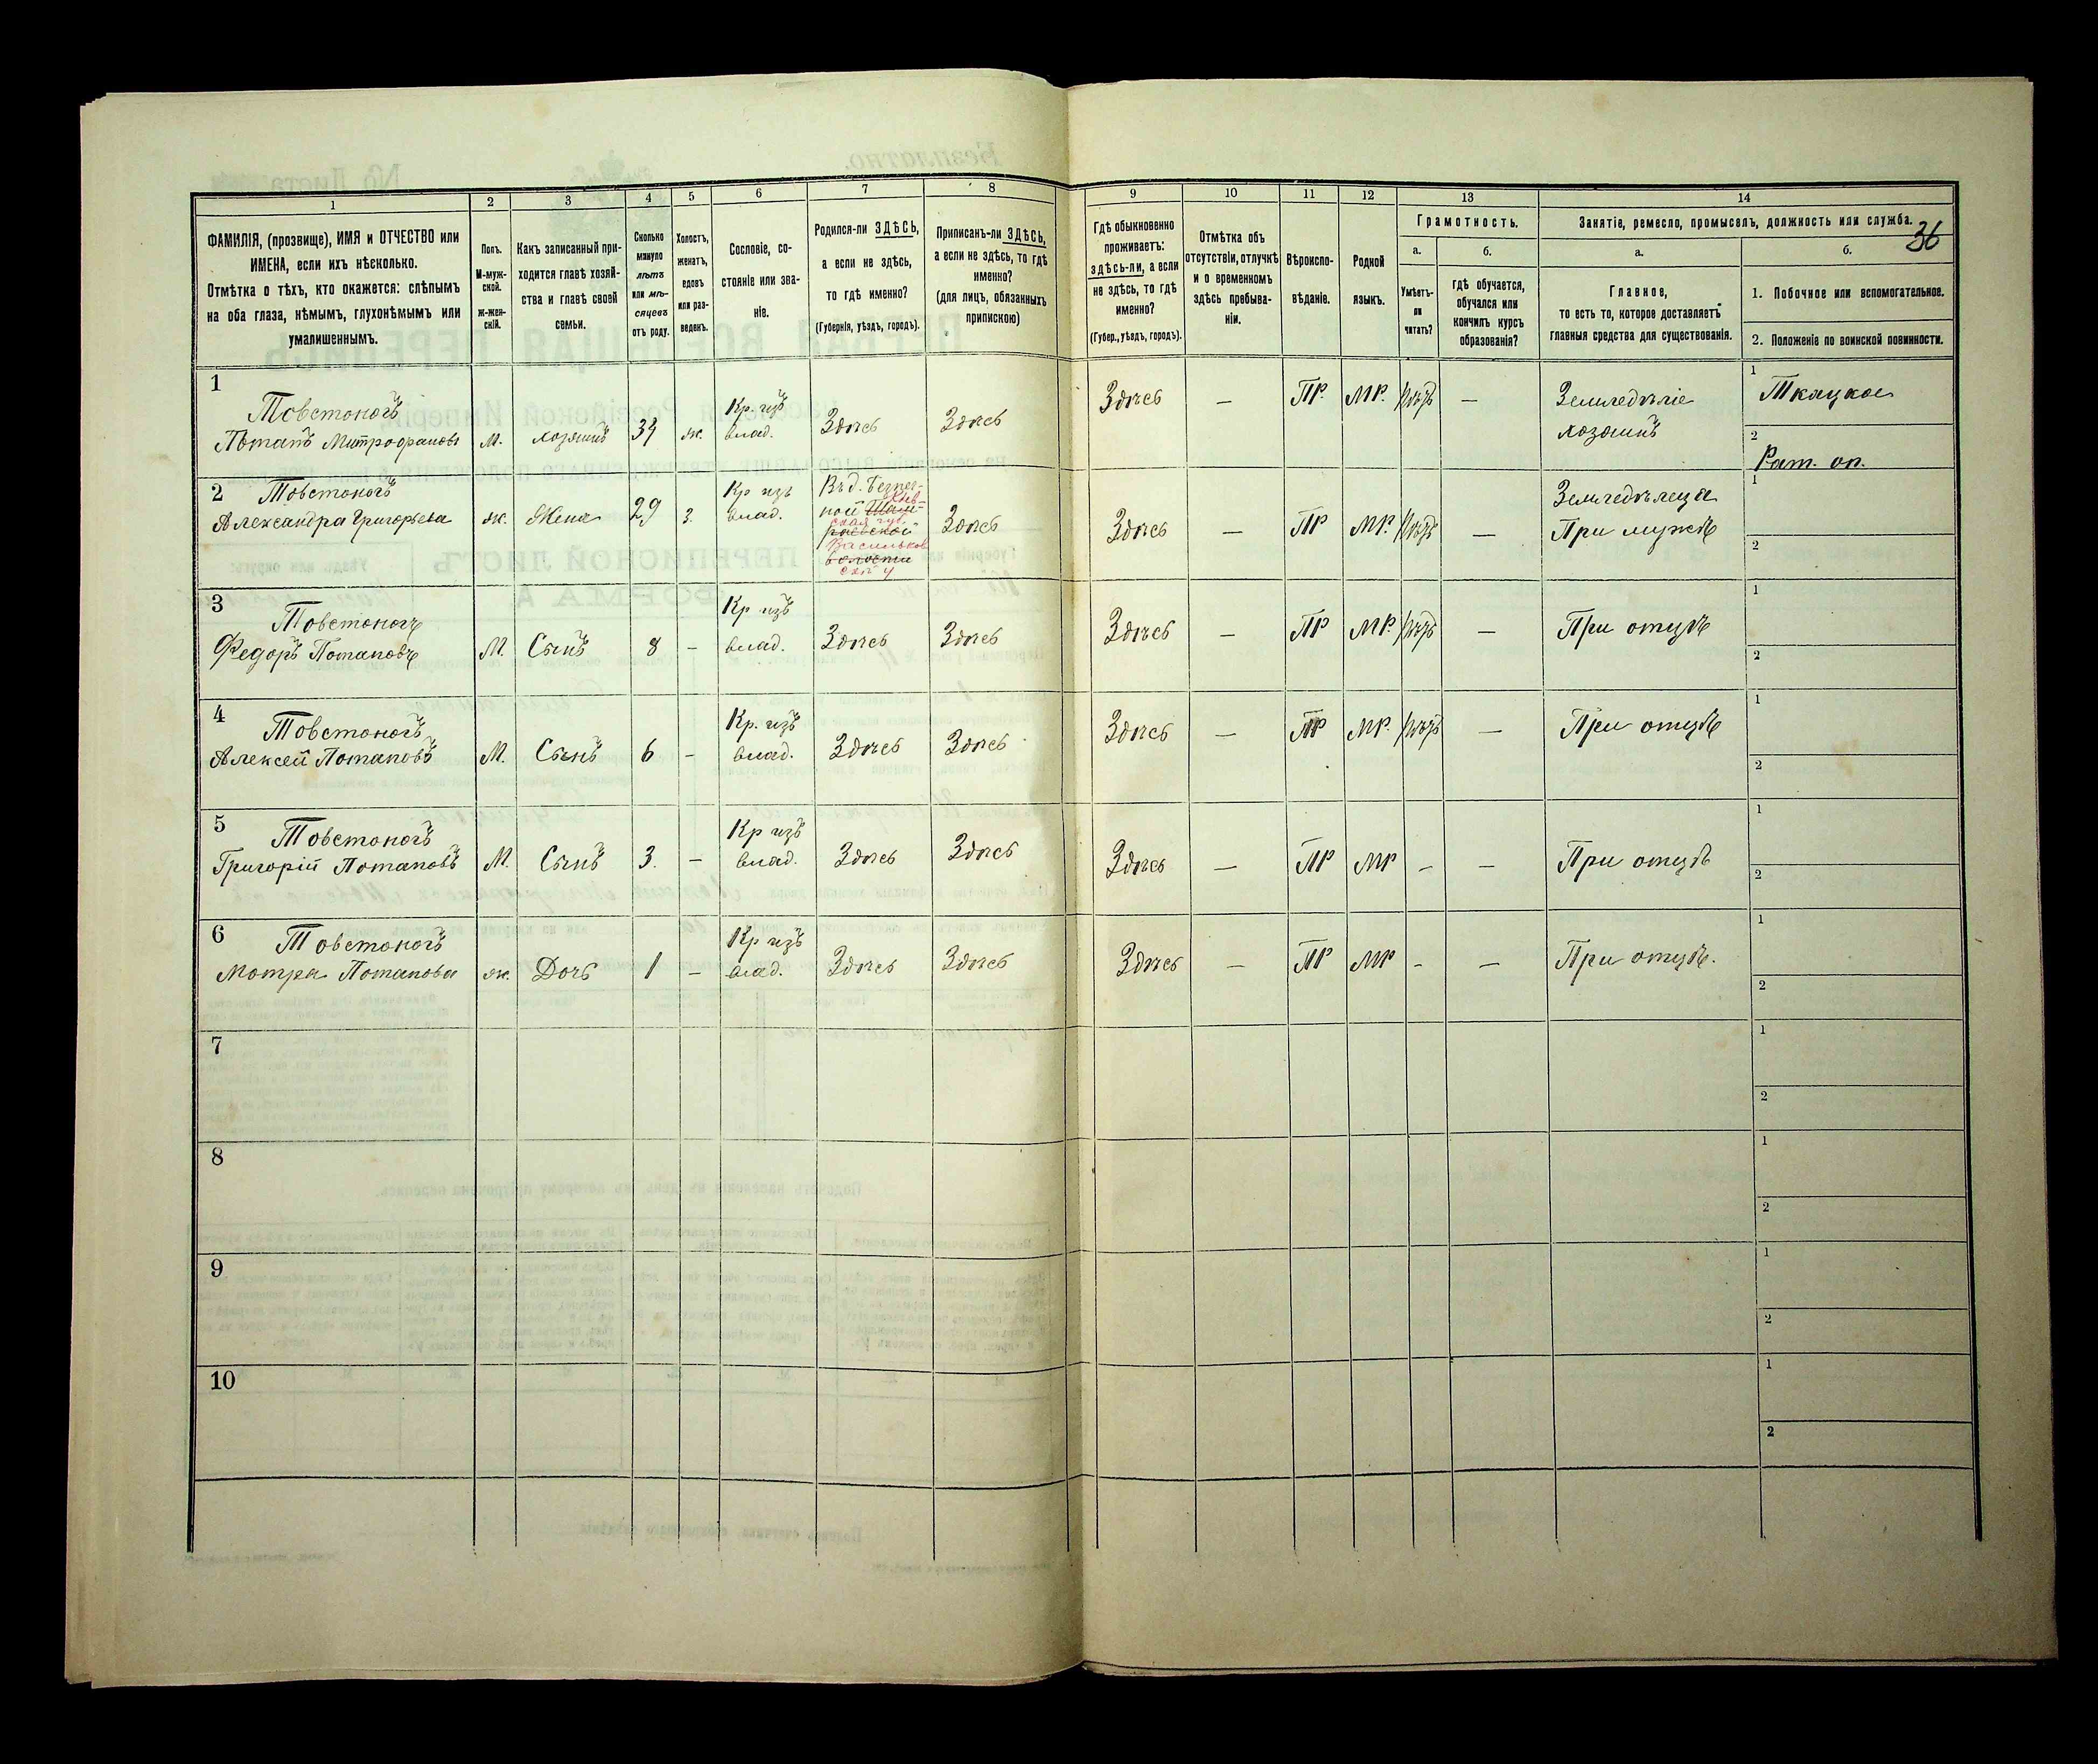 1 2 3 4 5 6 7 8 9 10 11 12 13 14
36
ФАМИЛІЯ, (прозвище), ИМЯ и ОТЧЕСТВО или
ИМЕНА, если ихъ нѣсколько.
Отмѣтка о тѣхъ, кто окажется: слѣпымъ
на оба глаза, нѣмымъ, глухонѣмымъ или
умалишеннымъ.
Полъ.
М-муж-
ской.
Ж-жен-
скій.
Какъ записанный при-
ходится главѣ хозяй-
ства и главѣ своей
семьи.
Сколько
минуло
лѣтъ
или мѣ-
сяцевъ
отъ роду.
Холостъ,
женатъ,
вдовъ
или раз-
веденъ.
Сословіе, со-
стояніе или зва-
ніе.
Родился-ли ЗДѢСЬ,
а если не здѣсь,
то гдѣ именно?
(Губернія, уѣздъ, городъ).
Приписанъ-ли ЗДѢСЬ,
а если не здѣсь, то гдѣ
именно?
(для лицъ, обязанныхъ
припискою)
Гдѣ обыкновенно
проживаетъ:
здѣсь-ли, а если
не здѣсь, то гдѣ
именно?
(Губер., уѣздъ, городъ).
Отмѣтка объ
отсутствіи, отлучкѣ
и о временномъ
здѣсь пребыва-
ніи.
Вѣроиспо-
вѣданіе.
Родной
языкъ.
Грамотность.
а.
Умѣетъ-
ли
читать?
б.
гдѣ обучается,
обучался или
кончилъ курсъ
образованія?
Занятіе, ремесло, промыселъ, должность или служба.
а.
Главное,
то есть то, которое доставляетъ
главныя средства для существованія.
б.
1. Побочное или вспомогательное.
2. Положеніе по воинской повинности.
1
Товстоногъ
Потапъ Митрофановъ
М.
хозяинъ
34
ж.
Кр. изъ
влад.
Здѣсь
Здѣсь
Здѣсь
—
ПР.
МР.
нѣтъ
—
Земледѣліе
хозяинъ
1
Ткацкое
2
Рат. оп.
2
Товстоногъ
Александра Григорьева
ж.
Жена
29
з.
Кр изъ
влад.
Въ д. Безпеч-
ной
Кіев-
ская губ.
раевской
Васильков
волости
скій у
Здѣсь
Здѣсь
—
ПР
МР.
нѣтъ
—
Земледѣлеца
При мужѣ
1
2
3
Товстоногъ
Федоръ Потаповъ
М.
Сынъ
8
–
Кр изъ
влад.
Здѣсь
Здѣсь
Здѣсь
—
ПР
МР.
нѣтъ
—
При отцѣ
1
2
4
Товстоногъ
Алексей Потаповъ
М.
Сынъ
6
–
Кр. изъ
влад.
Здѣсь
Здѣсь
Здѣсь
—
ПР
МР.
нѣтъ
—
При отцѣ
1
2
5
Товстоногъ
Григорій Потаповъ
М.
Сынъ
3.
–
Кр изъ
влад.
Здѣсь
Здѣсь
Здѣсь
—
ПР
МР
–
–
При отцѣ
1
2
6
Товстоногъ
Мотря Потапова
ж.
Дочь
1
–
Кр изъ
влад.
Здѣсь
Здѣсь
Здѣсь
—
ПР
МР
–
—
При отцѣ.
1
2
7
1
2
8
1
2
9
1
2
10
1
2